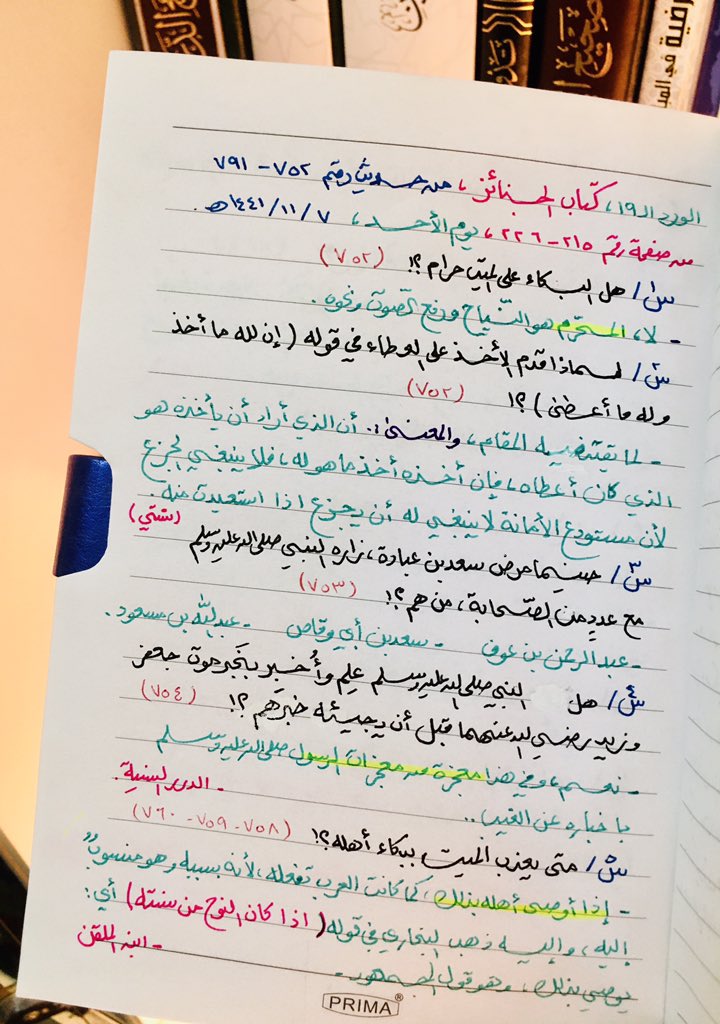 الورد الـ١٩، كتاب الجنائز، من حديث رقم ٧٥٢ - ٧٩١
من صفحة رقم ٢١٥ - ٢٢٦، يوم الأحد، ١٤٤١/١١/٧هـ.
س١/ هل البكاء على الميت حرام؟! (٧٥٢)
- لا، المحرّم هو النّياح ورفع الصّوت ونحوه.
س٢/ لماذا قدم الأخذ على العطاء في قوله (إن لله ما أخذ
وله ما أعطى)؟! (٧٥٢)
- لما يقتضيه المقام، والمعنى: أن الذي أراد أن يأخذه هو
الذي كان أعطاه، فإن أخذه أخذ ما هو له، فلا ينبغي الجزع
لأن مستودع الأمانة لا ينبغي له أن يجزع اذا استعيدت منه.
س٣/ حينما مرض سعد بن عبادة، زاره النبي صلى الله عليه وسلم
مع عدد من الصّحابة، من هم؟! (٧٥٣)
- عبدالرحمن بن عوف - سعد بن أبي وقاص - عبدالله بن مسعود.
س٤/ هل النبي صلى الله عليه وسلم علم وأُخبر بخبر موت جعفر
وزيد رضي الله عنهما قبل أن يجيئه خبرهم؟! (٧٥٤)
- نعم، وفي هذا معجزة من معجزات الرسول صلى الله عليه وسلم
بإخباره عن الغيب.. - الدرر السنية.
س٥/ متى يعذب الميت ببكاء أهله؟! (٧٥٨-٧٥٩-٧٦٠)
- إذا أوصى أهله بذلك، كما كانت العرب تفعله، لأنه بسببه وهو منسوبٌ
إليه، وإليه ذهب البخاري في قوله (اذا كان النوح من سنته) أي:
يوصي بذلك، وهو قول الجمهور. - ابن الملقن
PRIMA®